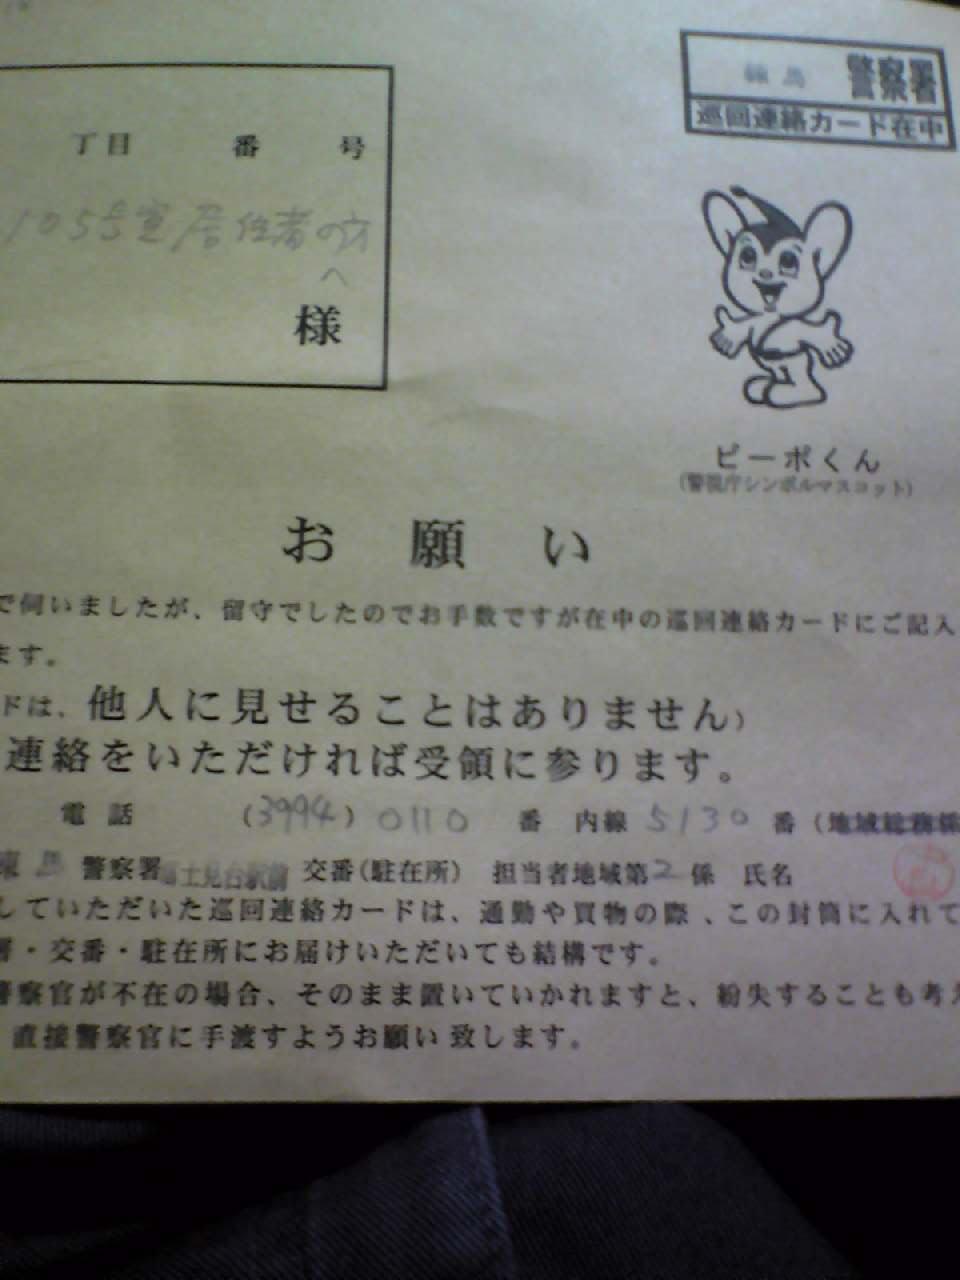 練馬 警察署
巡回連絡カード在中
丁目 番 号
105号室 居住者の方
へ
様
ピーポくん
(警視庁シンボルマスコット)
お願い
で伺いましたが、留守でしたのでお手数ですが在中の巡回連絡カードにご記入
ます。
ドは、他人に見せることはありません)
連絡をいただければ受領に参ります。
電話 (3994) 0110 番 内線 5130 番 (地域総務係
練馬 警察署 富士見台駅前 交番(駐在所) 担当者地域第2係 氏名
していただいた巡回連絡カードは、通勤や買物の際、この封筒に入れて
署・交番・駐在所にお届けいただいても結構です。
警察官が不在の場合、そのまま置いていかれますと、紛失することも考え
直接警察官に手渡すようお願い致します。